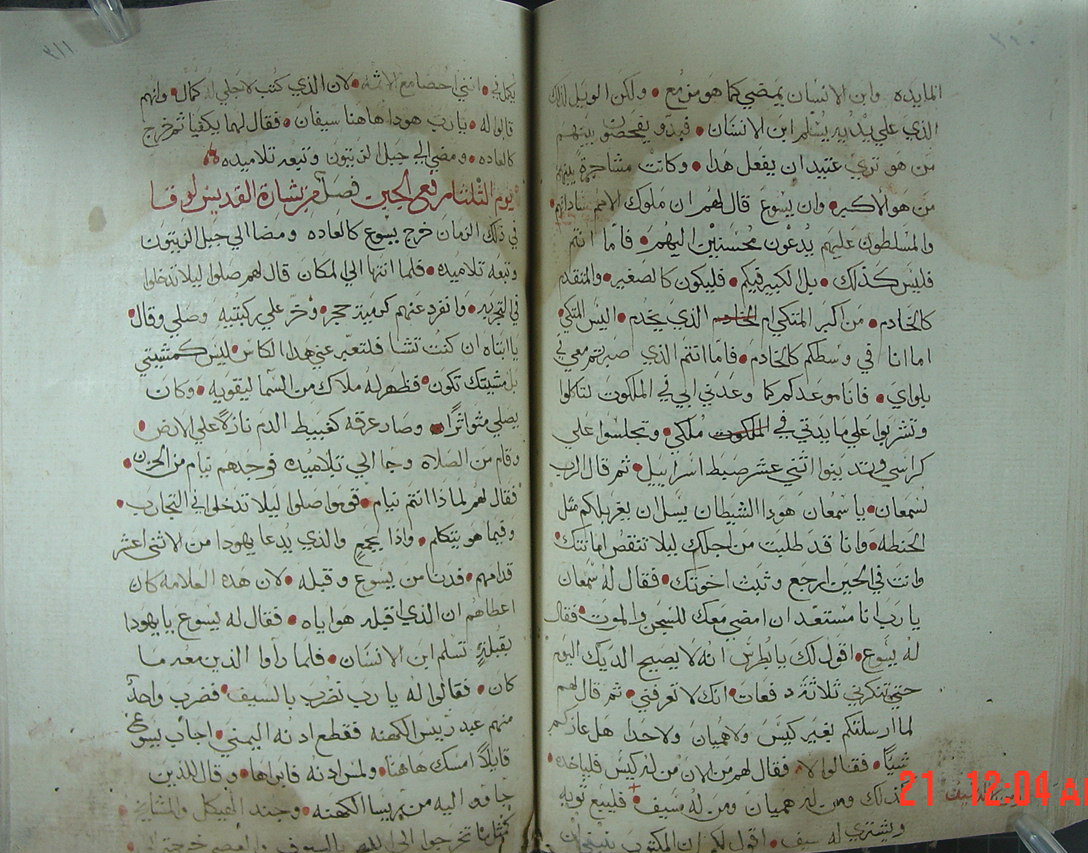 ٣١٠
المايده وابن الانسان يمضي كما هو مزمع • ولكن الويل لذلك
الذي علي يديه يسلم ابن الانسان • فبدو يفحصون بينهم
من هو تري عتيد ان يفعل هدا • وكانت مشاجرة بينهم
من هو الاكبر • وان يسوع قال لهم ان ملوك الامم ساداتهم
والمسلطون عليهم يدعون محسنين اليهم • فاما انتم
فليس كذلك • بل الكبير فيكم • فليكون كالصغير • والمتقدم
كالخادم • من اكبر المتكي ام الذي يخدم • اليس المتكي
اما انا في وسطكم كالخادم • فاما انتم الذي صبرتم معي في
بلواي • فانا موعدكم كما وعدني ابي في الملكوت لتاكلوا
وتشربوا علي مايدتي في الملكوت ملكي • وتجلسوا علي
كراسي وتدينوا اثني عشر ضبط اسراييل • ثم قال الرب
لسمعان • يا سمعان هودا الشيطان يسل ان يغربلكم مثل
الحنطه • وانا قد طلبت من اجلك ليلا تنقص امانتك •
وانت في الحين ارجع وثبت اخوتك • فقال له سمعان
يا رب انا مستعد ان امضي معك للسجن والموت • فقال
له يسوع • اقول لك يا بطرس انه لا يصيح الديك اليوم
حتي تنكرني ثلاثة دفعات • انك لا تعرفني • ثم قال لهم
لما ارسلتكم بغير كيس ولا هميان ولا حدا هل عازكم
شيئًا • فقالوا لا • فقال لهم من الان من له كيس فلياخذه •
كذلك ومن له هميان ومن له سيف • فليبع توبه
ويشتري له سيف • اقول لكم ان المكتوب ينبغي ان
٣١١
يكمل في • انني احصا مع الاثمه • لان الذي كتب لاجلي له كمال • وانهم
قالوا له • يا رب هودا هاهنا سيفان • فقال لهما يكفيا ثم خرج
كالعاده • ومضي الي جبل الزيتون وتبعه تلاميده •
يوم الثلثا من رفعي الجبن فصل من بشارة القديس لوقا
في ذلك الزمان خرج يسوع كالعاده ومضا الي جبل الزيتون
وتبعه تلاميده • فلما انتها الي المكان قال لهم صلوا ليلا تدخلوا
في التجربه • وانفرد عنهم كرمية حجر • وخر علي ركبتيه وصلي وقال •
يا ابتاه ان كنت تشا فلتعبر عني هدا الكاس • ليس كمشيتي
بل مشيتك تكون • فظهر له ملاك من السما ليقويه • وكان
يصلي متواترًا • وصار عرقه كعبيط الدم نازلاً علي الارض •
وقام من الصلاة وجا الي تلاميده فوجدهم نيام من الحزن •
فقال لهم لماذا انتم نيام • قوموا صلوا ليلا تدخلوا في التجارب •
وفيما هو يتكلم • واذا بجمع والذي يدعا يهودا من الاثني اعشر
قدامهم • فدنا من يسوع وقبله • لان هده العلامه كان
اعطاهم ان الذي اقبله هو اياه • فقال له يسوع يا يهودا
بقبله تسلم ابن الانسان • فلما راوا الذين معه ما
كان • فقالوا له يا رب نضرب بالسيف • فضرب واحدًا
منهم عبد رييس الكهنه فقطع ادنه اليمني • اجاب يسوع
قايلاً امسك هاهنا • ولمس ادنه فابراها • وقال للذين
جاوو اليه من رييسا الكهنه • وجند الهيكل والمشايخ •
21 12:04 A